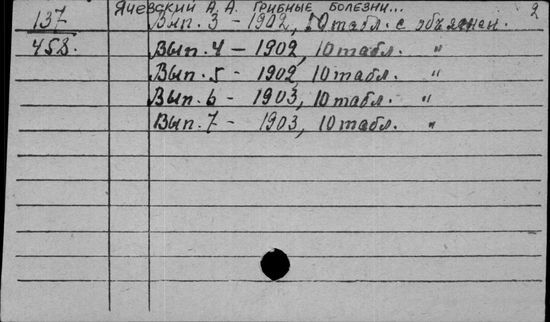 Ячевский А. А. Грибные болезни... 2
137 Вып. 3 - 1902, 10 табл. с объяснен.
458. Вып. 4 - 1902, 10 табл. "
Вып. 5 - 1902, 10 табл. "
Вып. 6 - 1903, 10 табл. "
Вып. 7 - 1903, 10 табл. "